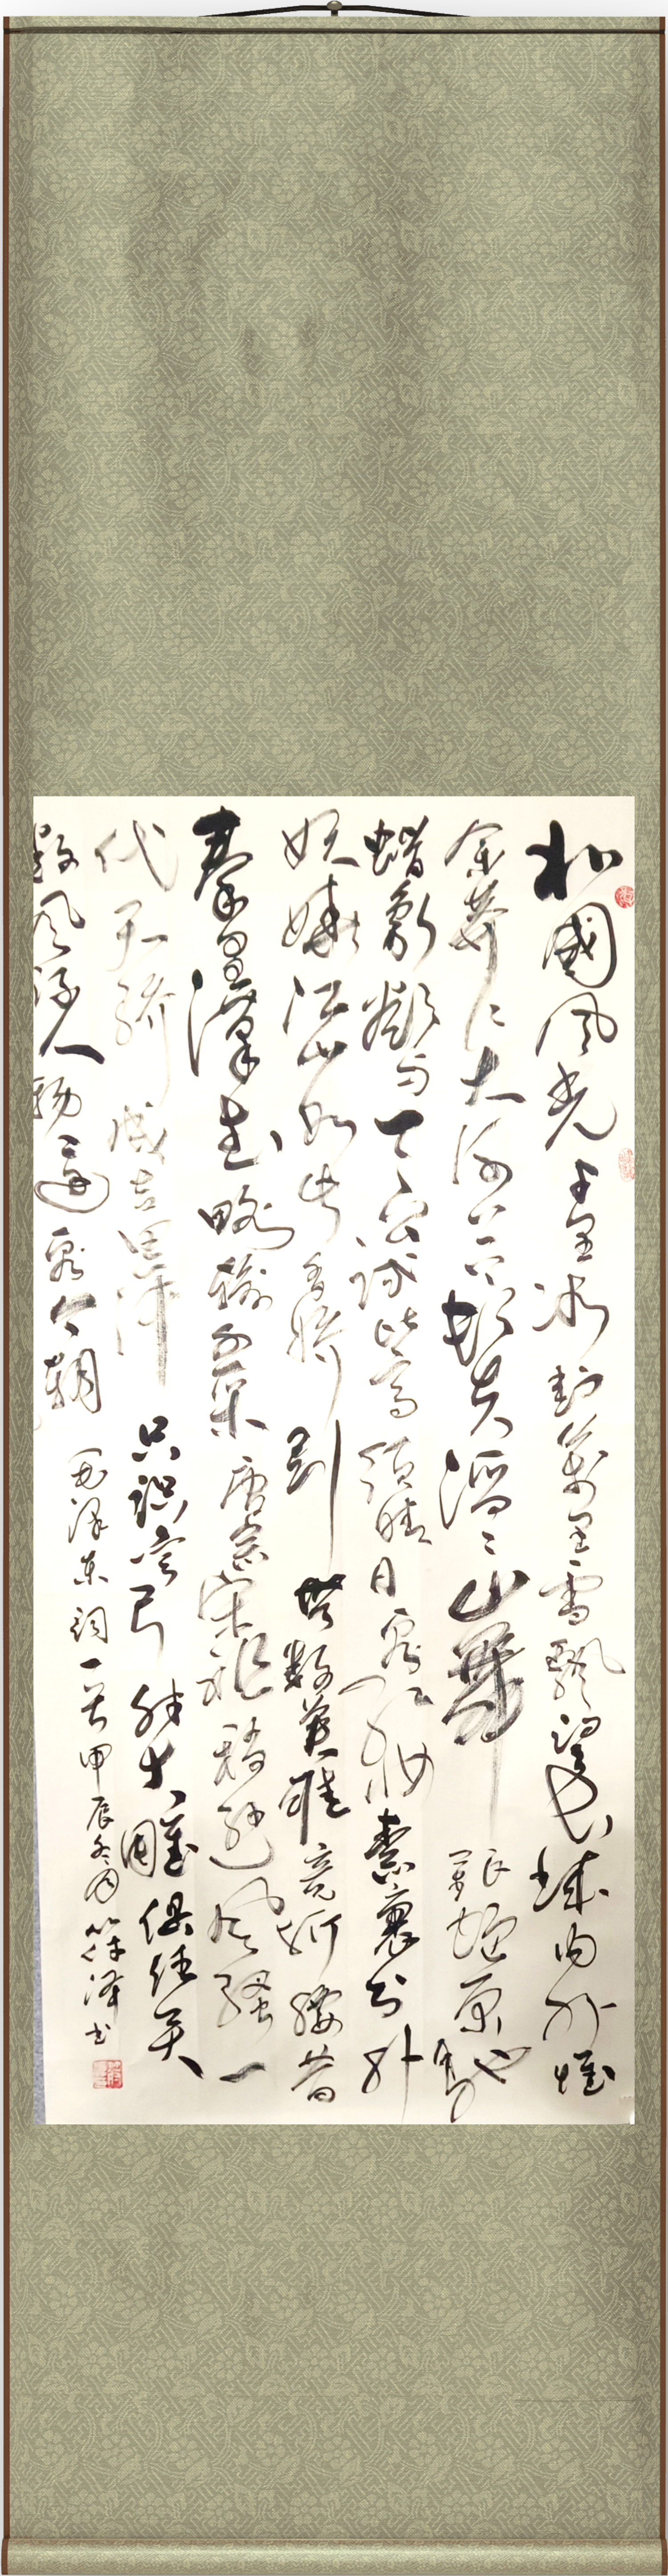 北國風光千里冰封萬里雪飄望長城内外惟
余莽〻大河上下頓失滔〻山舞銀蛇原馳
蠟象欲与天公試比高須晴日看红妝素裹分外
妖嬈江山如此多嬌引無數英雄竞折腰昔
秦皇漢武略輸文采唐宗宋祖稍遜風騷一
代天驕成吉思汗只識彎弓射大雕俱往矣
數風流人物還看今朝
毛泽東詞一首甲辰冬月泽书